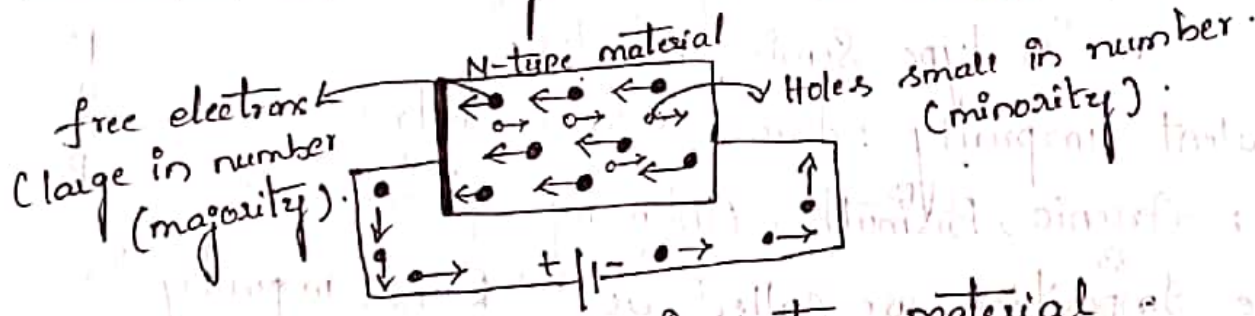 N-type material
free electrons
(large in number
(majority).
Holes small in number.
(minority).
+ -
material